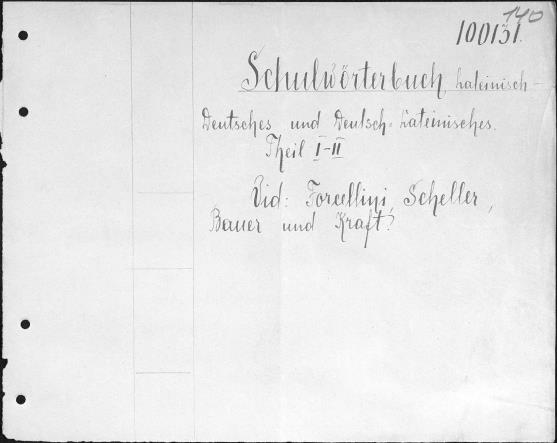 140
100131.
Schulwörterbuch, Lateinisch-
Deutsches und Deutsch-Lateinisches.
Theil I-II
Vid: Forcellini, Scheller,
Bauer und Kraft?